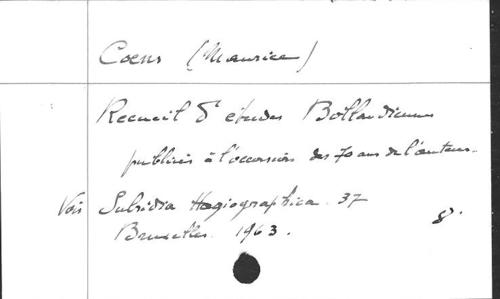 Coens (Maurice)
Recueil d'études Bollandiennes
publiées à l'occasion des 70 ans de l'auteur.
Voir Subsidia Hagiographica. 37
Bruxelles. 1963. 8°.